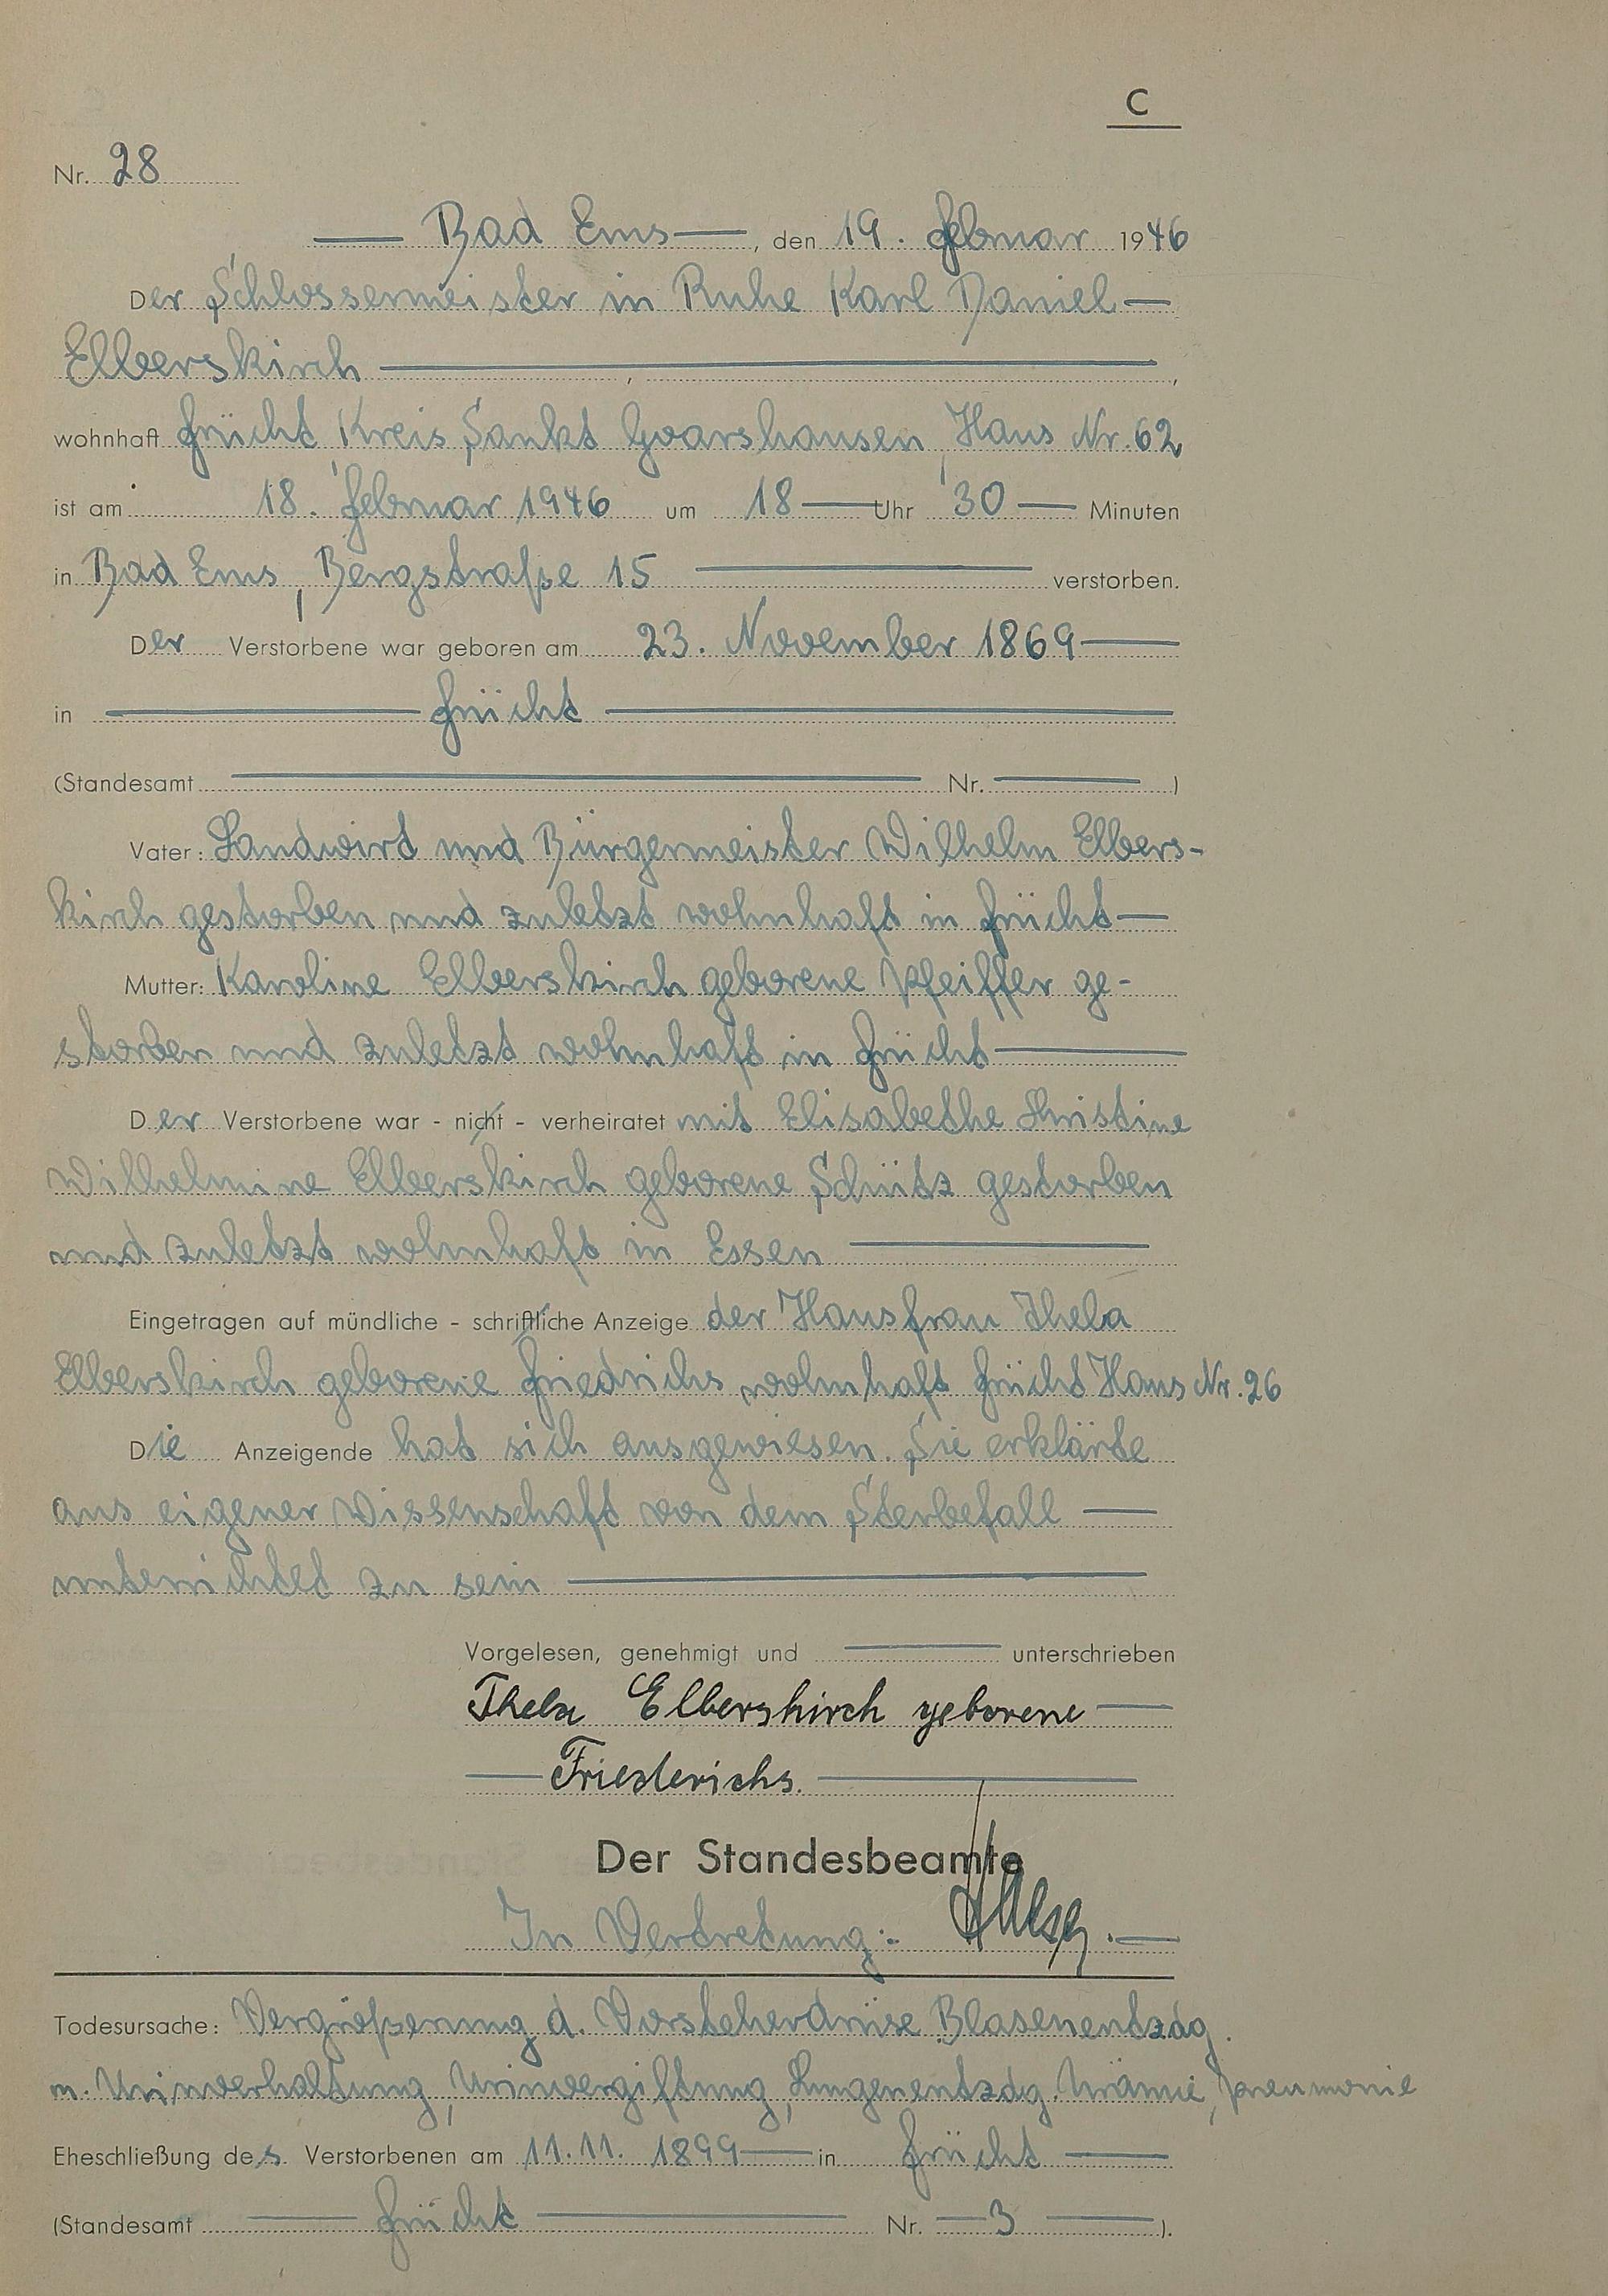 C
Nr. 28
Bad Ems, den 19. Februar 1946
Der Schlossermeister in Ruhe Karl Daniel
Elberskirch
wohnhaft Frücht Kreis Sankt Goarshausen, Haus Nr. 62
ist am 18. Februar 1946 um 18 Uhr 30 Minuten
in Bad Ems, Bergstraße 15 verstorben.
Der Verstorbene war geboren am 23. November 1869
in Frücht
(Standesamt Nr. )
Vater: Landwirt und Bürgermeister Wilhelm Elbers-
kirch gestorben und zuletzt wohnhaft in Frücht
Mutter: Karoline Elberskirch geborene Pfeiffer ge-
storben und zuletzt wohnhaft in Frücht
Der Verstorbene war - nicht - verheiratet mit Elisabethe Christine
Wilhelmine Elberskirch geborene Schütz gestorben
und zuletzt wohnhaft in Essen
Eingetragen auf mündliche - schriftliche Anzeige der Hausfrau Thela
Elberskirch geborene Friedrichs wohnhaft Frücht Haus Nr. 26
Die Anzeigende hat sich ausgewiesen. Sie erklärte
aus eigener Wissenschaft von dem Sterbefall
unterrichtet zu sein
Vorgelesen, genehmigt und unterschrieben
Thela Elberskirch geborene
Friederichs.
Der Standesbeamte
In Vertretung:
Todesursache: Vergrößerung d. Vorsteherdrüse Blasenentzdg.
m. Urinverhaltung, Urinvergiftung, Lungenentzdg. Urämie, Pneumonie
Eheschließung des Verstorbenen am 11.11. 1899 in Frücht
(Standesamt Frücht Nr. 3 ).